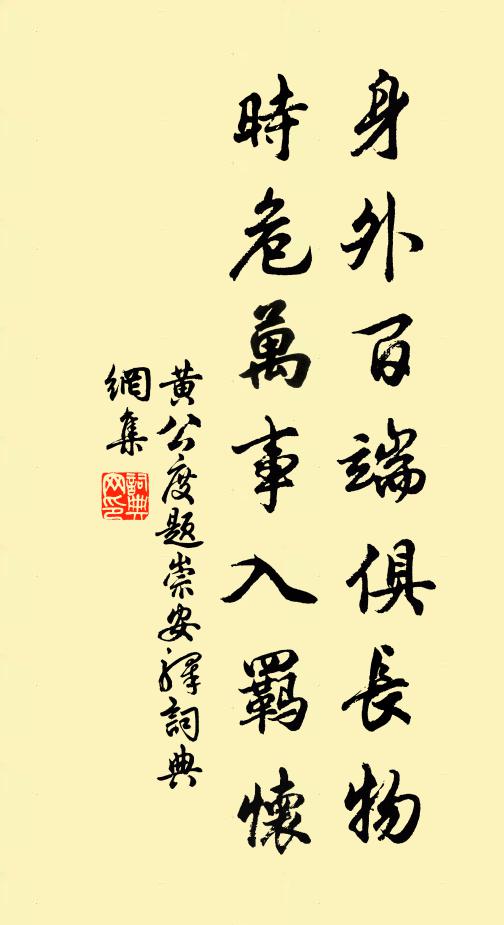 身外百端俱長物
時危萬事入羈懷
黃公度題崇安驛詞典
網集
詞典
网印